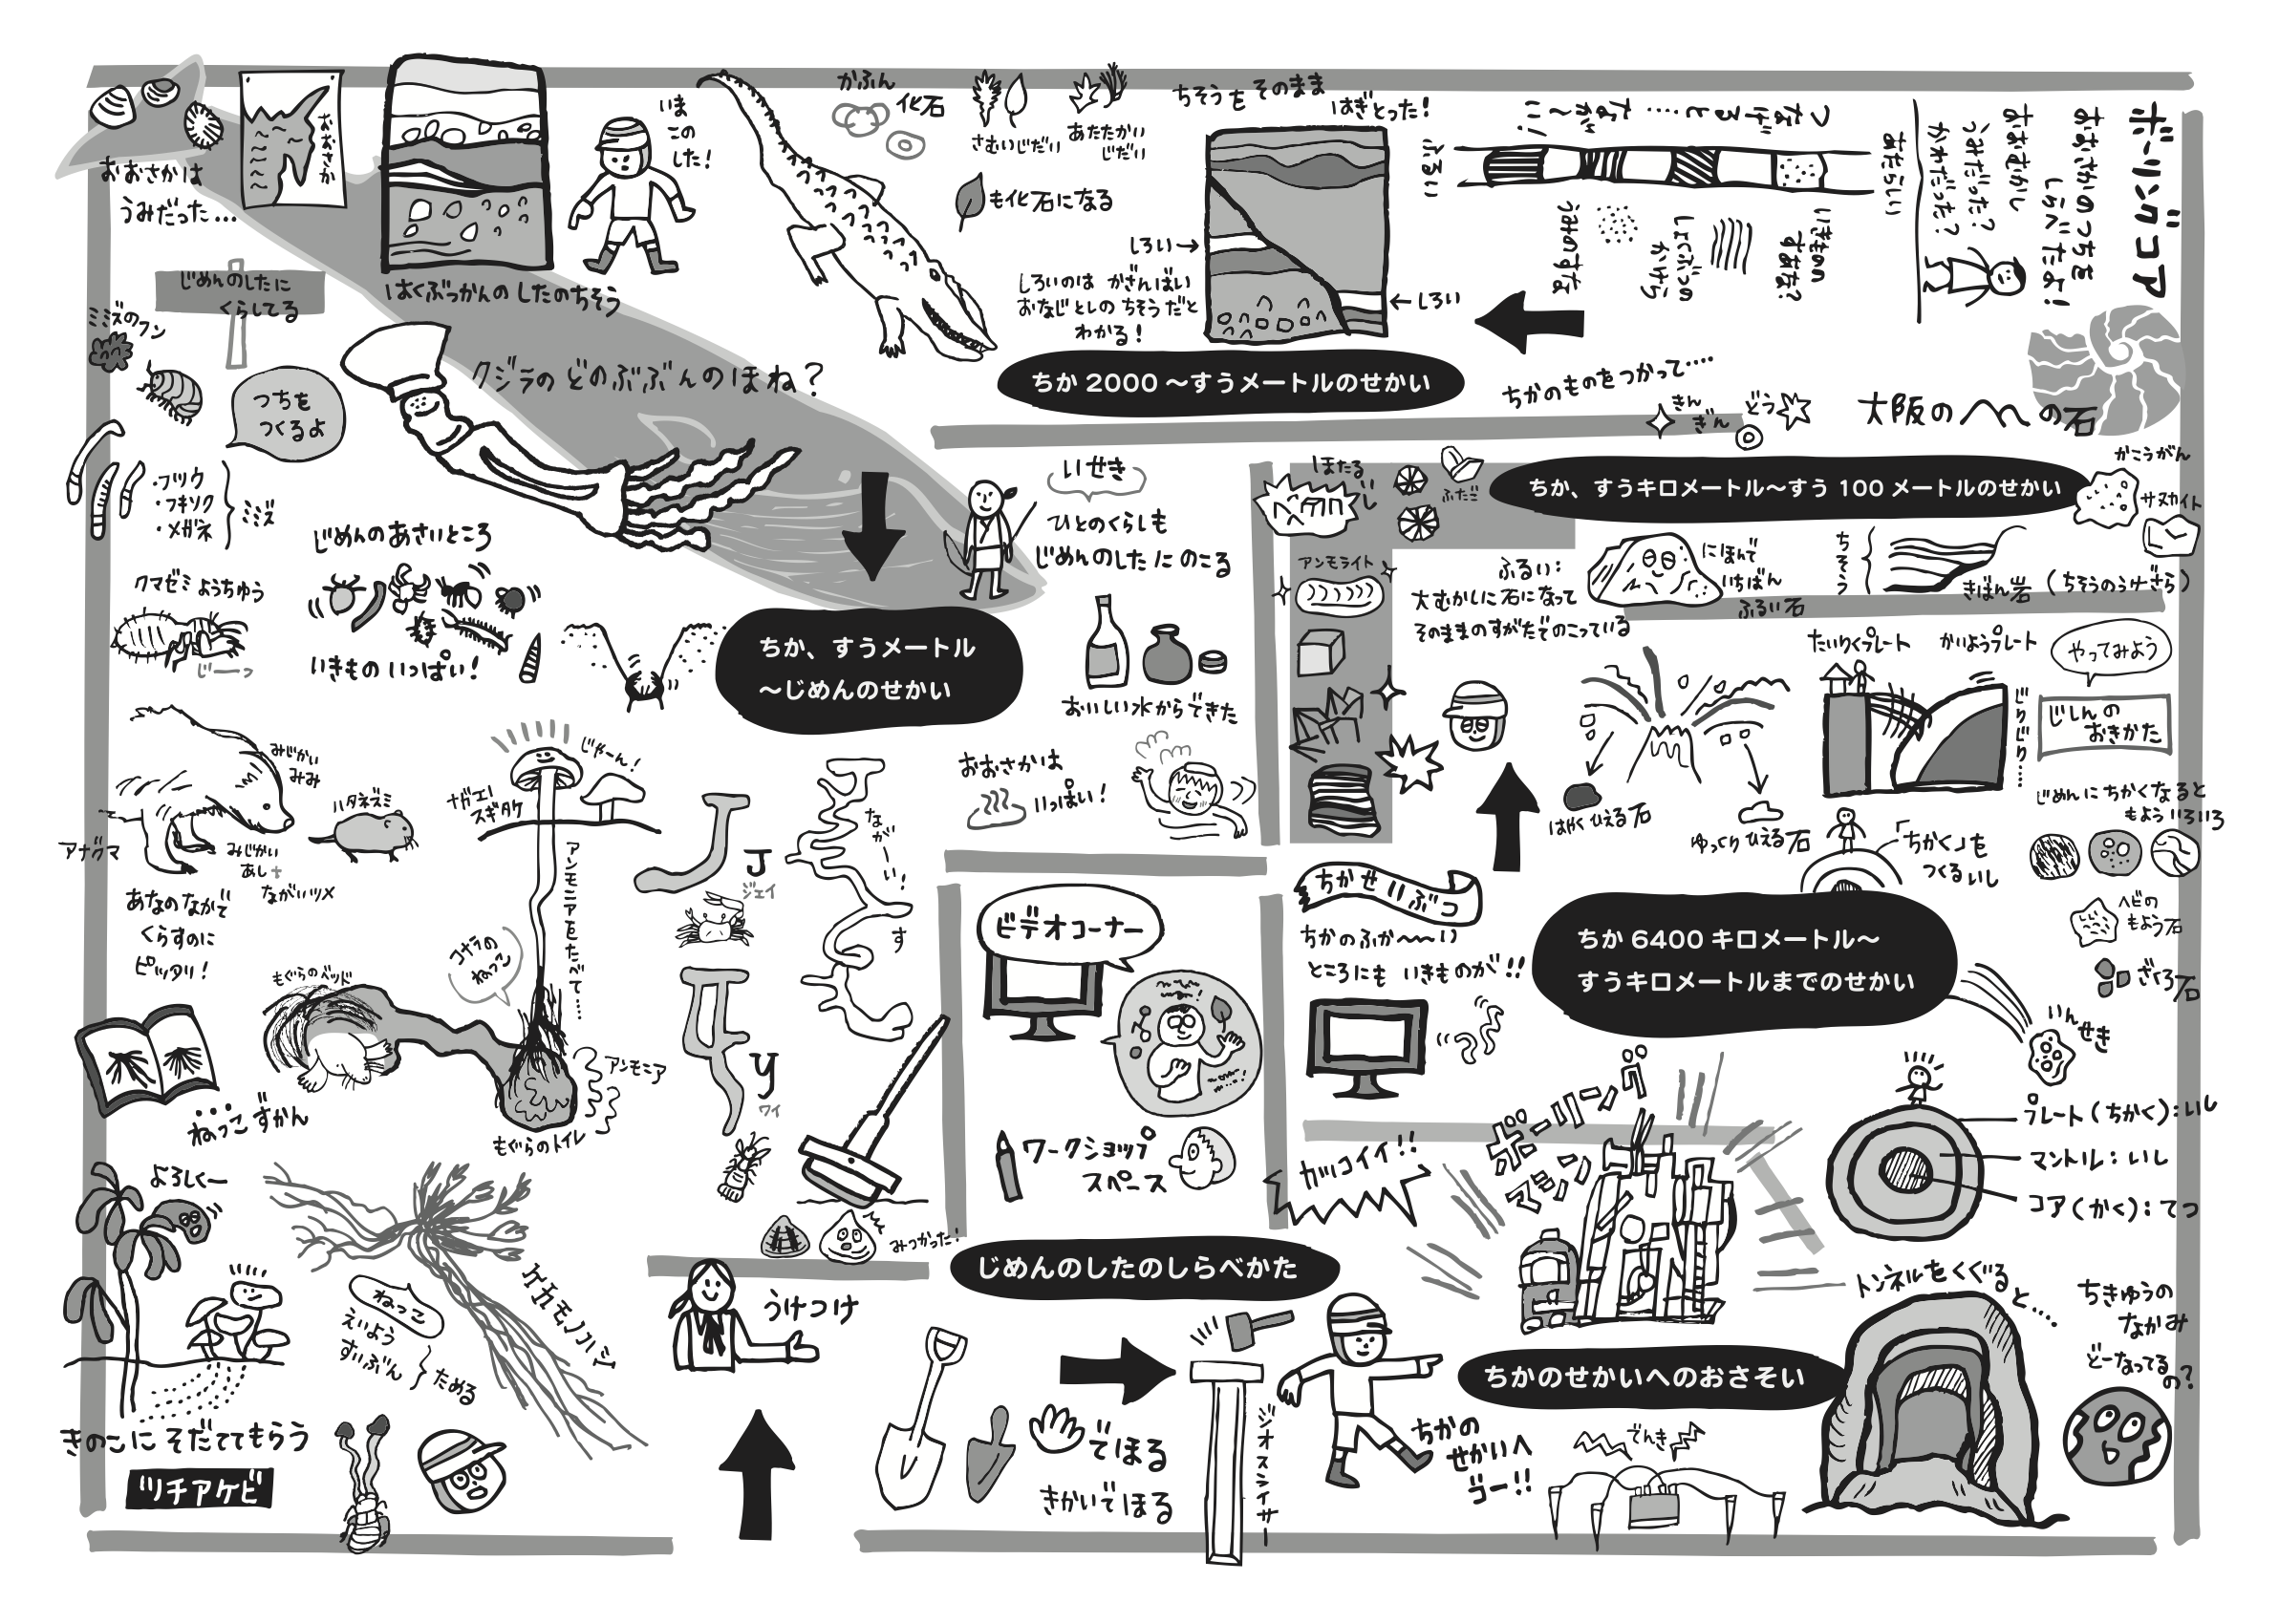 おおさかは
うみだった…
おおさか
いま
この
した!
はくぶつかんの したのちそう
かふん
化石
さむいじだい
あたたかい
じだい
も化石になる
ちそうを そのまま
はぎとった!
しろい→
←しろい
しろいのは かざんばい
おなじ としの ちそう だと
わかる!
ちか 2000 ~すうメートルのせかい
ボーリングコア
おおさかのつちを
しらべたよ!
おおむかし
うみだった?
かわだった?
つなげると…… なが~い!
ふるい
あたらしい
いきものの
すあな?
しょくぶつの
かけら
うみのすな
じめんのしたに
くらしてる
ミミズのフン
つちを
つくるよ
・フツウ
・フキソク
・メガネ
ミミズ
クジラの どのぶぶんのほね?
じめんのあさいところ
いきもの いっぱい!
クマゼミ ようちゅう
じーっ
ちか、すうメートル
~じめんのせかい
いせき
ひとのくらしも
じめんのした に のこる
おいしい水からできた
おおさかは
いっぱい!
ちかのものをつかって……
きん
ぎん
どう
大阪の へへ の石
ちか、すうキロメートル~すう 100 メートルのせかい
かこうがん
サヌカイト
ほたる
いし
ふたご
アンモライト
ふるい:
大むかしに石になって
そのままのすがたでのこっている
にほんで
いちばん
ふるい石
ちそう
きばん岩 (ちそうのうけざら)
たいりくプレート
かいようプレート
やってみよう
じしんの
おきかた
じりじり……
はやく ひえる石
ゆっくり ひえる石
じめんに ちかくなると
もよういろいろ
「ちかく」を
つくるいし
ヘビの
もよう石
ざくろ石
いんせき
ちか 6400 キロメートル~
すうキロメートルまでのせかい
ちかせいぶつ
ちかのふか~~い
ところにも いきものが!!
みじかい
みみ
アナグマ
みじかい
あし+
ながいツメ
あなのなかで
くらすのに
ピッタリ!
ハタネズミ
ナガエノ
スギタケ
じゃーん!
アンモニアをたべて……
コナラの
ねっこ
もぐらのベッド
アンモニア
もぐらのトイレ
J
ジェイ
なが~い!
す
y
ワイ
みつかった!
ねっこ ずかん
よろしくー
きのこに そだててもらう
ツチアケビ
ケカモノハシ
ねっこ
えいよう
すいぶん
ためる
ビデオコーナー
ワークショップ
スペース
うけつけ
じめんのしたのしらべかた
でほる
きかいでほる
ジオスライサー
ちかの
せかいへ
ゴー!!
ガッコイイ!!
ボーリング
マシン
プレート(ちかく):いし
マントル:いし
コア(かく):てつ
ちかのせかいへのおさそい
でんき
トンネルをくぐると……
ちきゅうの
なかみ
どーなってる
の?